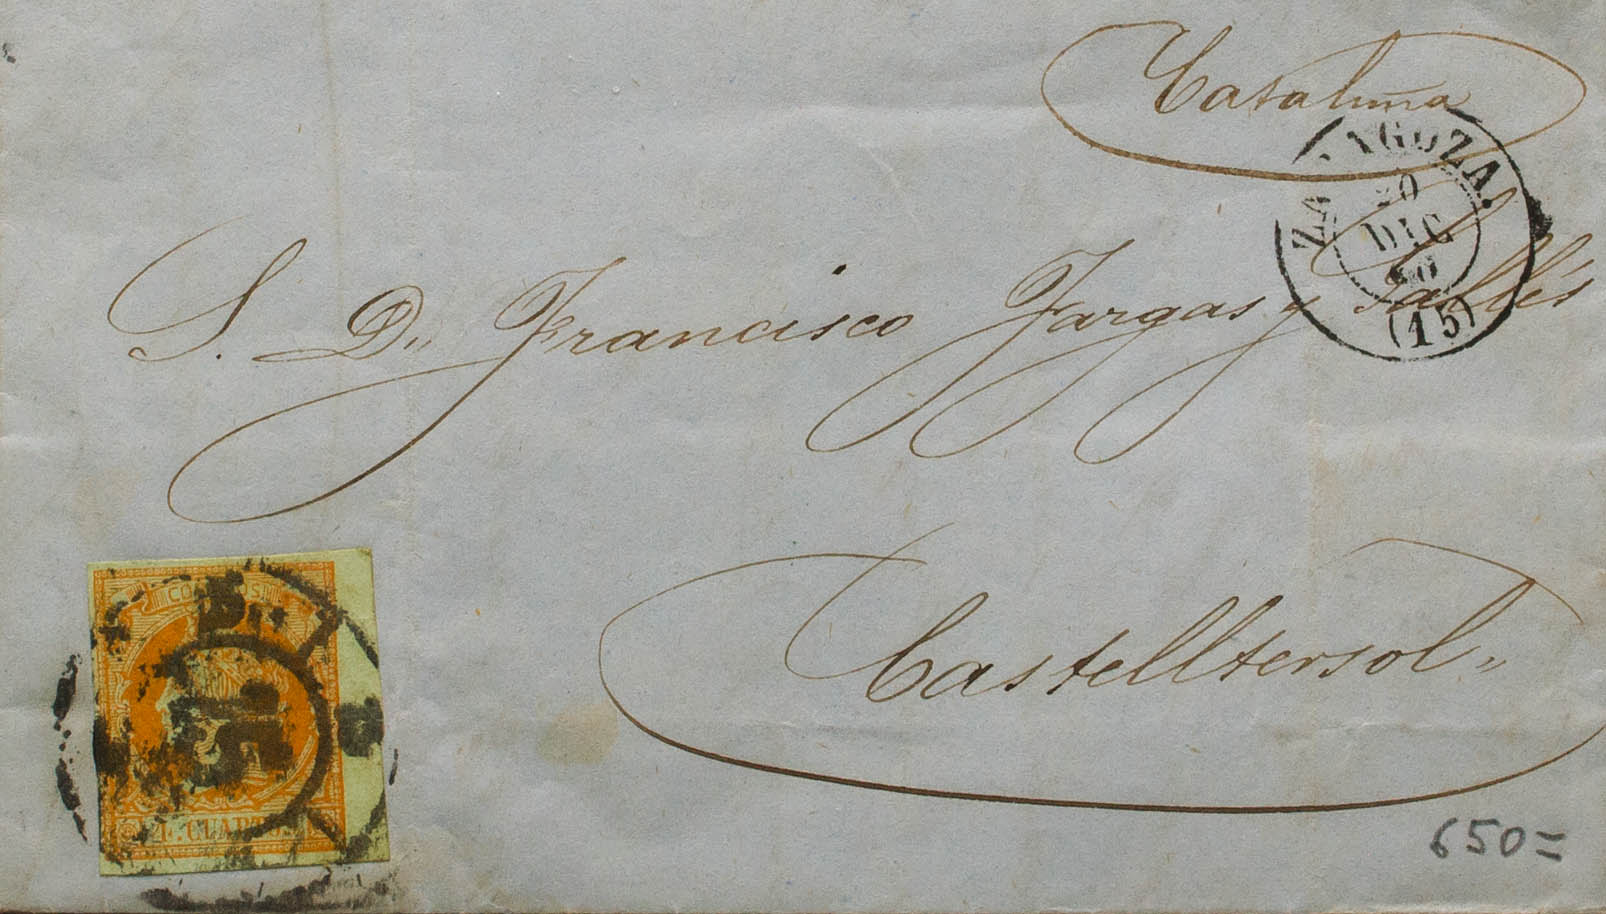 Cataluña
ZARAGOZA.
20
DIC
60
(15)
S. D.,, Francisco Fargas y Sallés
Castelltersol,,
CORREOS
15
4 CUARTOS
650=